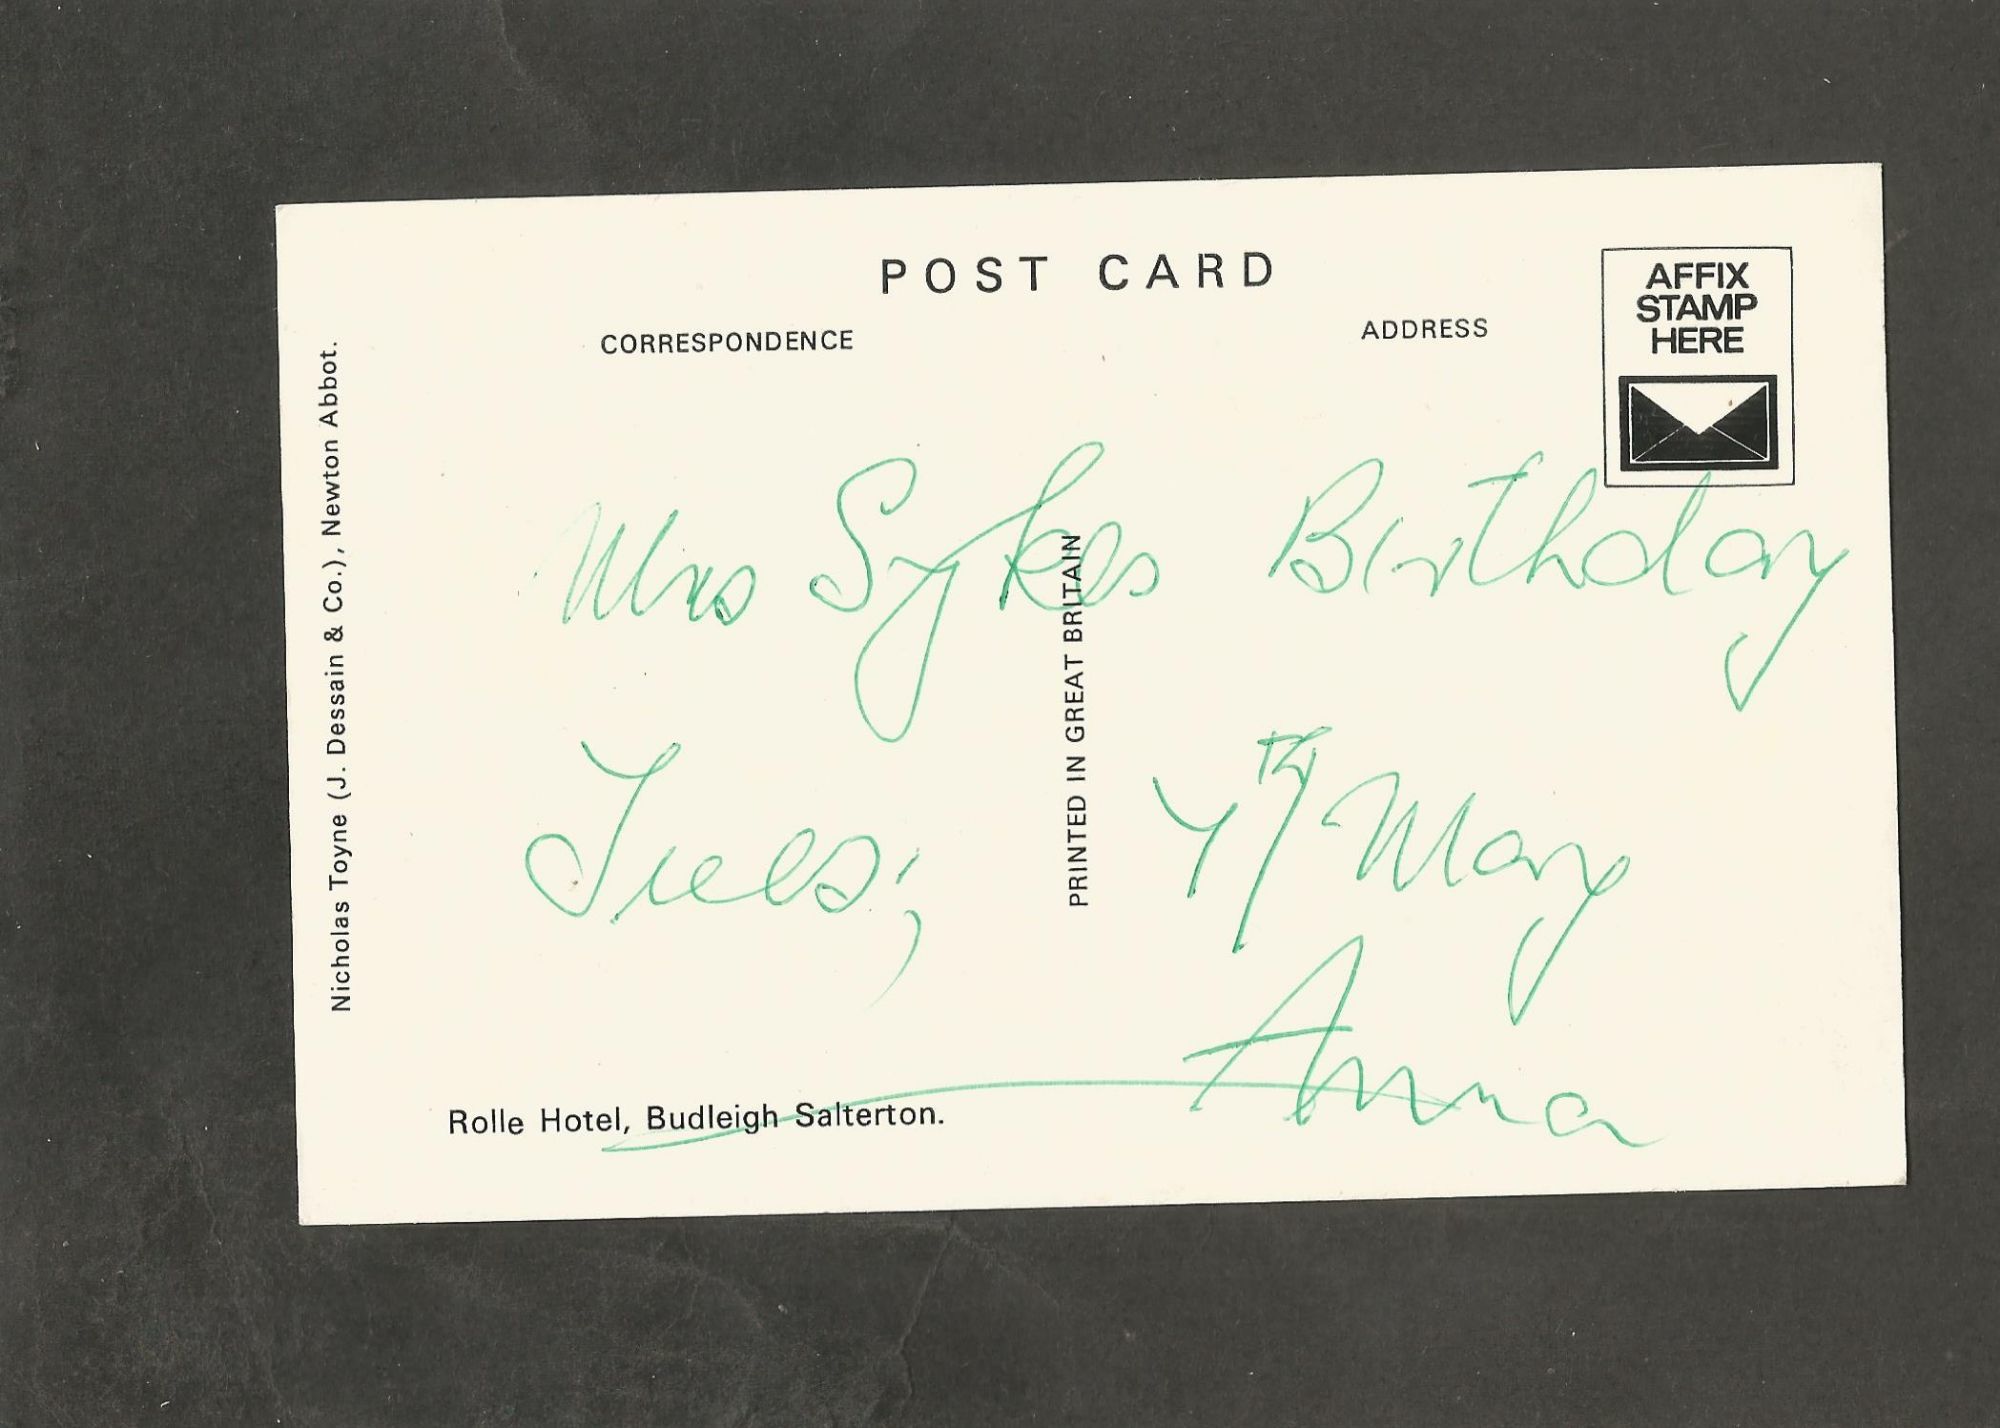 POST CARD
CORRESPONDENCE
ADDRESS
AFFIX
STAMP
HERE
Nicholas Toyne (J. Dessain & Co.), Newton Abbot.
PRINTED IN GREAT BRITAIN
Mrs Sykes Birthday
Tues, 4th May
Anna
Rolle Hotel, Budleigh Salterton.